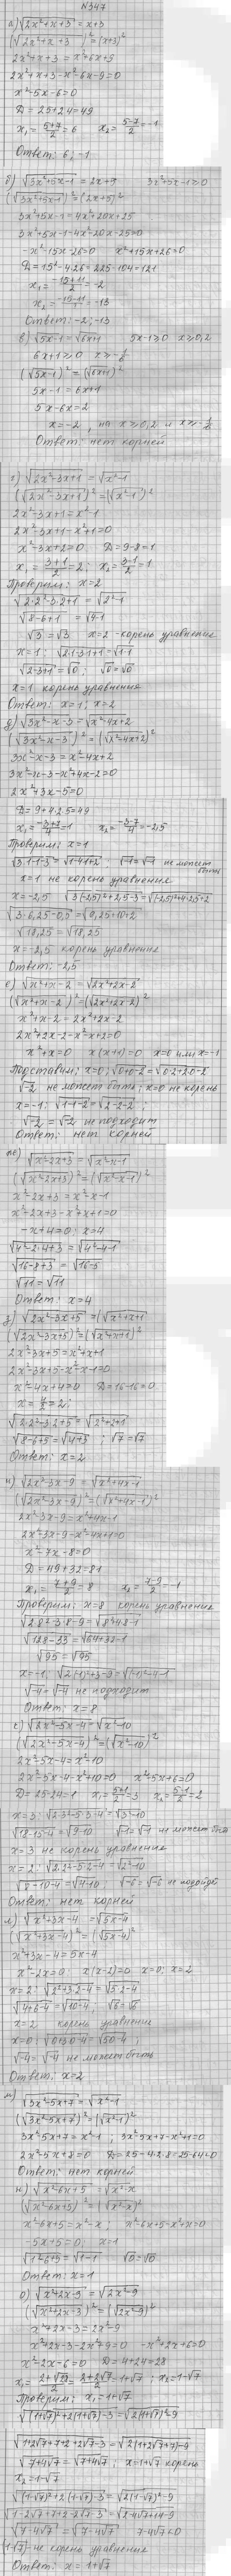 N 347
а) √(2x²+x+3) = x+3
(√(2x²+x+3))² = (x+3)²
2x²+x+3 = x²+6x+9
2x²+x+3-x²-6x-9=0
x²-5x-6=0
D = 25+24=49
x₁ = (5+7)/2 = 6   x₂ = (5-7)/2 = -1
Ответ: 6; -1
б) √(3x²+5x-1) = 2x+5   3x²+5x-1≥0
(√(3x²+5x-1))² = (2x+5)²
3x²+5x-1 = 4x²+20x+25
3x²+5x-1-4x²-20x-25=0
-x²-15x-26=0   x²+15x+26=0
D = 15²-4·26 = 225-104 = 121
x₁ = (-15+11)/2 = -2
x₂ = (-15-11)/2 = -13
Ответ: -2; -13
в) √(5x-1) = √(6x+1)   5x-1≥0   x≥0,2
6x+1≥0   x≥-1/6
(√(5x-1))² = (√(6x+1))²
5x-1 = 6x+1
5x-6x=2
x=-2, но x≥0,2 и x≥-1/6
Ответ: нет корней
г) √(2x²-3x+1) = √(x²-1)
(√(2x²-3x+1))² = (√(x²-1))²
2x²-3x+1 = x²-1
2x²-3x+1-x²+1=0
x²-3x+2=0   D=9-8=1
x₁ = (3+1)/2 = 2; x₂ = (3-1)/2 = 1
Проверим: x=2
√(2·2²-3·2+1) = √(2²-1)
√(8-6+1) = √(4-1)
√3 = √3   x=2 - корень уравнения
x=1: √(2·1-3·1+1) = √(1-1)
√(2-3+1) = √0; √0 = √0
x=1 корень уравнения
Ответ: x=1; x=2
д) √(3x²-x-3) = √(x²-4x+2)
(√(3x²-x-3))² = (√(x²-4x+2))²
3x²-x-3 = x²-4x+2
3x²-x-3-x²+4x-2=0
2x²+3x-5=0
D = 9+4·2·5=49
x₁ = (-3+7)/4 = 1   x₂ = (-3-7)/4 = -2,5
Проверим: x=1
√(3·1-1-3) = √(1-4+2); √-1 = √-1 не может быть
x=1 не корень уравнения
x=-2,5   √(3·(-2,5)²+2,5-3) = √((-2,5)²+4·2,5+2)
√(3·6,25-0,5) = √(6,25+10+2)
√18,25 = √18,25
x=-2,5 корень уравнения
Ответ: -2,5
е) √(x²+x-2) = √(2x²+2x-2)
(√(x²+x-2))² = (√(2x²+2x-2))²
x²+x-2 = 2x²+2x-2
2x²+2x-2-x²-x+2=0
x²+x=0   x(x+1)=0   x=0 или x=-1
Подставим: x=0; √(0+0-2) = √(0·2+2·0-2)
√-2 не может быть; x=0 не корень
x=-1: √(1-1-2) = √(2-2-2);
√-2 = √-2 не подходит
Ответ: нет корней
ж) √(x²-2x+3) = √(x²-x-1)
(√(x²-2x+3))² = (√(x²-x-1))²
x²-2x+3 = x²-x-1
x²-2x+3-x²+x+1=0
-x+4=0; x=4
√(4²-2·4+3) = √(4²-4-1)
√(16-8+3) = √(16-5)
√11 = √11
Ответ: x=4
з) √(2x²-3x+5) = √(x²+x+1
(√(2x²-3x+5))² = (√(x²+x+1))²
2x²-3x+5 = x²+x+1
2x²-3x+5-x²-x-1=0
x²-4x+4=0   D=16-16=0
x = 4/2 = 2;
√(2·2²-3·2+5) = √(2²+2+1)
√(8-6+5) = √(4+3); √7 = √7
Ответ: x=2
и) √(2x²-3x-9) = √(x²+4x-1)
(√(2x²-3x-9))² = (√(x²+4x-1))²
2x²-3x-9 = x²+4x-1
2x²-3x-9-x²-4x+1=0
x²-7x-8=0
D = 49+32=81
x₁ = (7+9)/2 = 8   x₂ = (7-9)/2 = -1
Проверим: x=8 корень уравнения
√(2·8²-3·8-9) = √(8²+4·8-1)
√(128-33) = √(64+32-1)
√95 = √95
x=-1, √(2(-1)²+3-9) = √((-1)²-4-1)
√-4 = √-4 не подходит
Ответ: x=8
к) √(2x²-5x-4) = √(x²-10)
(√(2x²-5x-4))² = (√(x²-10))²
2x²-5x-4 = x²-10
2x²-5x-4-x²+10=0   x²-5x+6=0
D=25-24=1   x₁ = (5+1)/2 = 3   x₂ = (5-1)/2 = 2
x=3: √(2·3²-5·3-4) = √(3²-10)
√(18-15-4) = √(9-10)   √-1 = √-1 не может быть
x=3 не корень уравнения
x=2: √(2·2²-5·2-4) = √(2²-10)
√(8-10-4) = √(4-10)   √-6 = √-6 не подойдет
Ответ: нет корней
л) √(x²+3x-4) = √(5x-4)
(√(x²+3x-4))² = (√(5x-4))²
x²+3x-4 = 5x-4
x²-2x=0   x(x-2)=0   x=0; x=2
x=2: √(2²+3·2-4) = √(5·2-4)
√(4+6-4) = √(10-4), √6 = √6
x=2 корень уравнения
x=0: √(0+3·0-4) = √(5·0-4);
√-4 = √-4 не может быть
Ответ: x=2
м) √(3x²-5x+7) = √(x²-1)
(√(3x²-5x+7))² = (√(x²-1))²
3x²-5x+7 = x²-1; 3x²-5x+7-x²+1=0
2x²-5x+8=0   D=25-4·2·8=25-64<0
Ответ: нет корней
н) √(x²-6x+5) = √(x²-x)
(√(x²-6x+5))² = (√(x²-x))²
x²-6x+5 = x²-x; x²-6x+5-x²+x=0
-5x+5=0   x=1
√(1-6+5) = √(1-1)   √0 = √0
Ответ: x=1
о) √(x²+2x-3) = √(2x²-9)
(√(x²+2x-3))² = (√(2x²-9))²
x²+2x-3 = 2x²-9
x²+2x-3-2x²+9=0   -x²+2x+6=0
x²-2x-6=0   D=4+24=28
x₁ = (2+√28)/2 = (2+2√7)/2 = 1+√7; x₂=1-√7
Проверим: x₁=1+√7
√((1+√7)²+2(1+√7)-3) = √(2(1+√7)²-9)
√(1+2√7+7+2+2√7-3) = √(2(1+2√7+7)-9)
√(7+4√7) = √(7+4√7); x=1+√7 корень
x₂=1-√7
√((1-√7)²+2(1-√7)-3) = √(2(1-√7)²-9)
√(1-2√7+7+2-2√7-3) = √(2-4√7+14-9)
√(7-4√7) = √(7-4√7)   7-4√7<0
(1-√7)- не корень уравнения
Ответ: x=1+√7